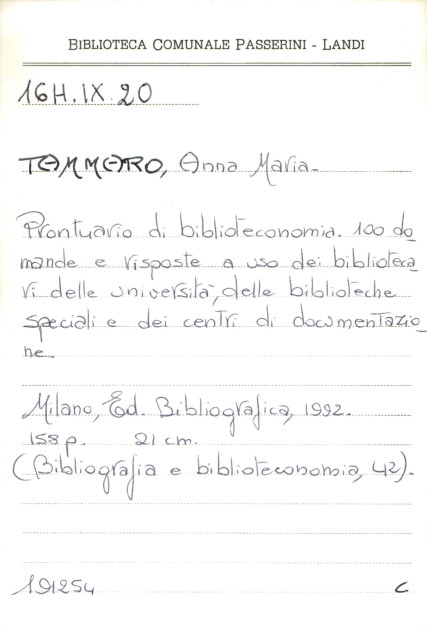 BIBLIOTECA COMUNALE PASSERINI - LANDI
16H.IX.20
TAMMARO, Anna Maria.
Prontuario di biblioteconomia. 100 do
mande e risposte a uso dei biblioteca
ri delle università, delle biblioteche
speciali e dei centri di documentazio
ne.
Milano, Ed. Bibliografica, 1992.
158 p. 21 cm.
(Bibliografia e biblioteconomia, 42).
191254 C